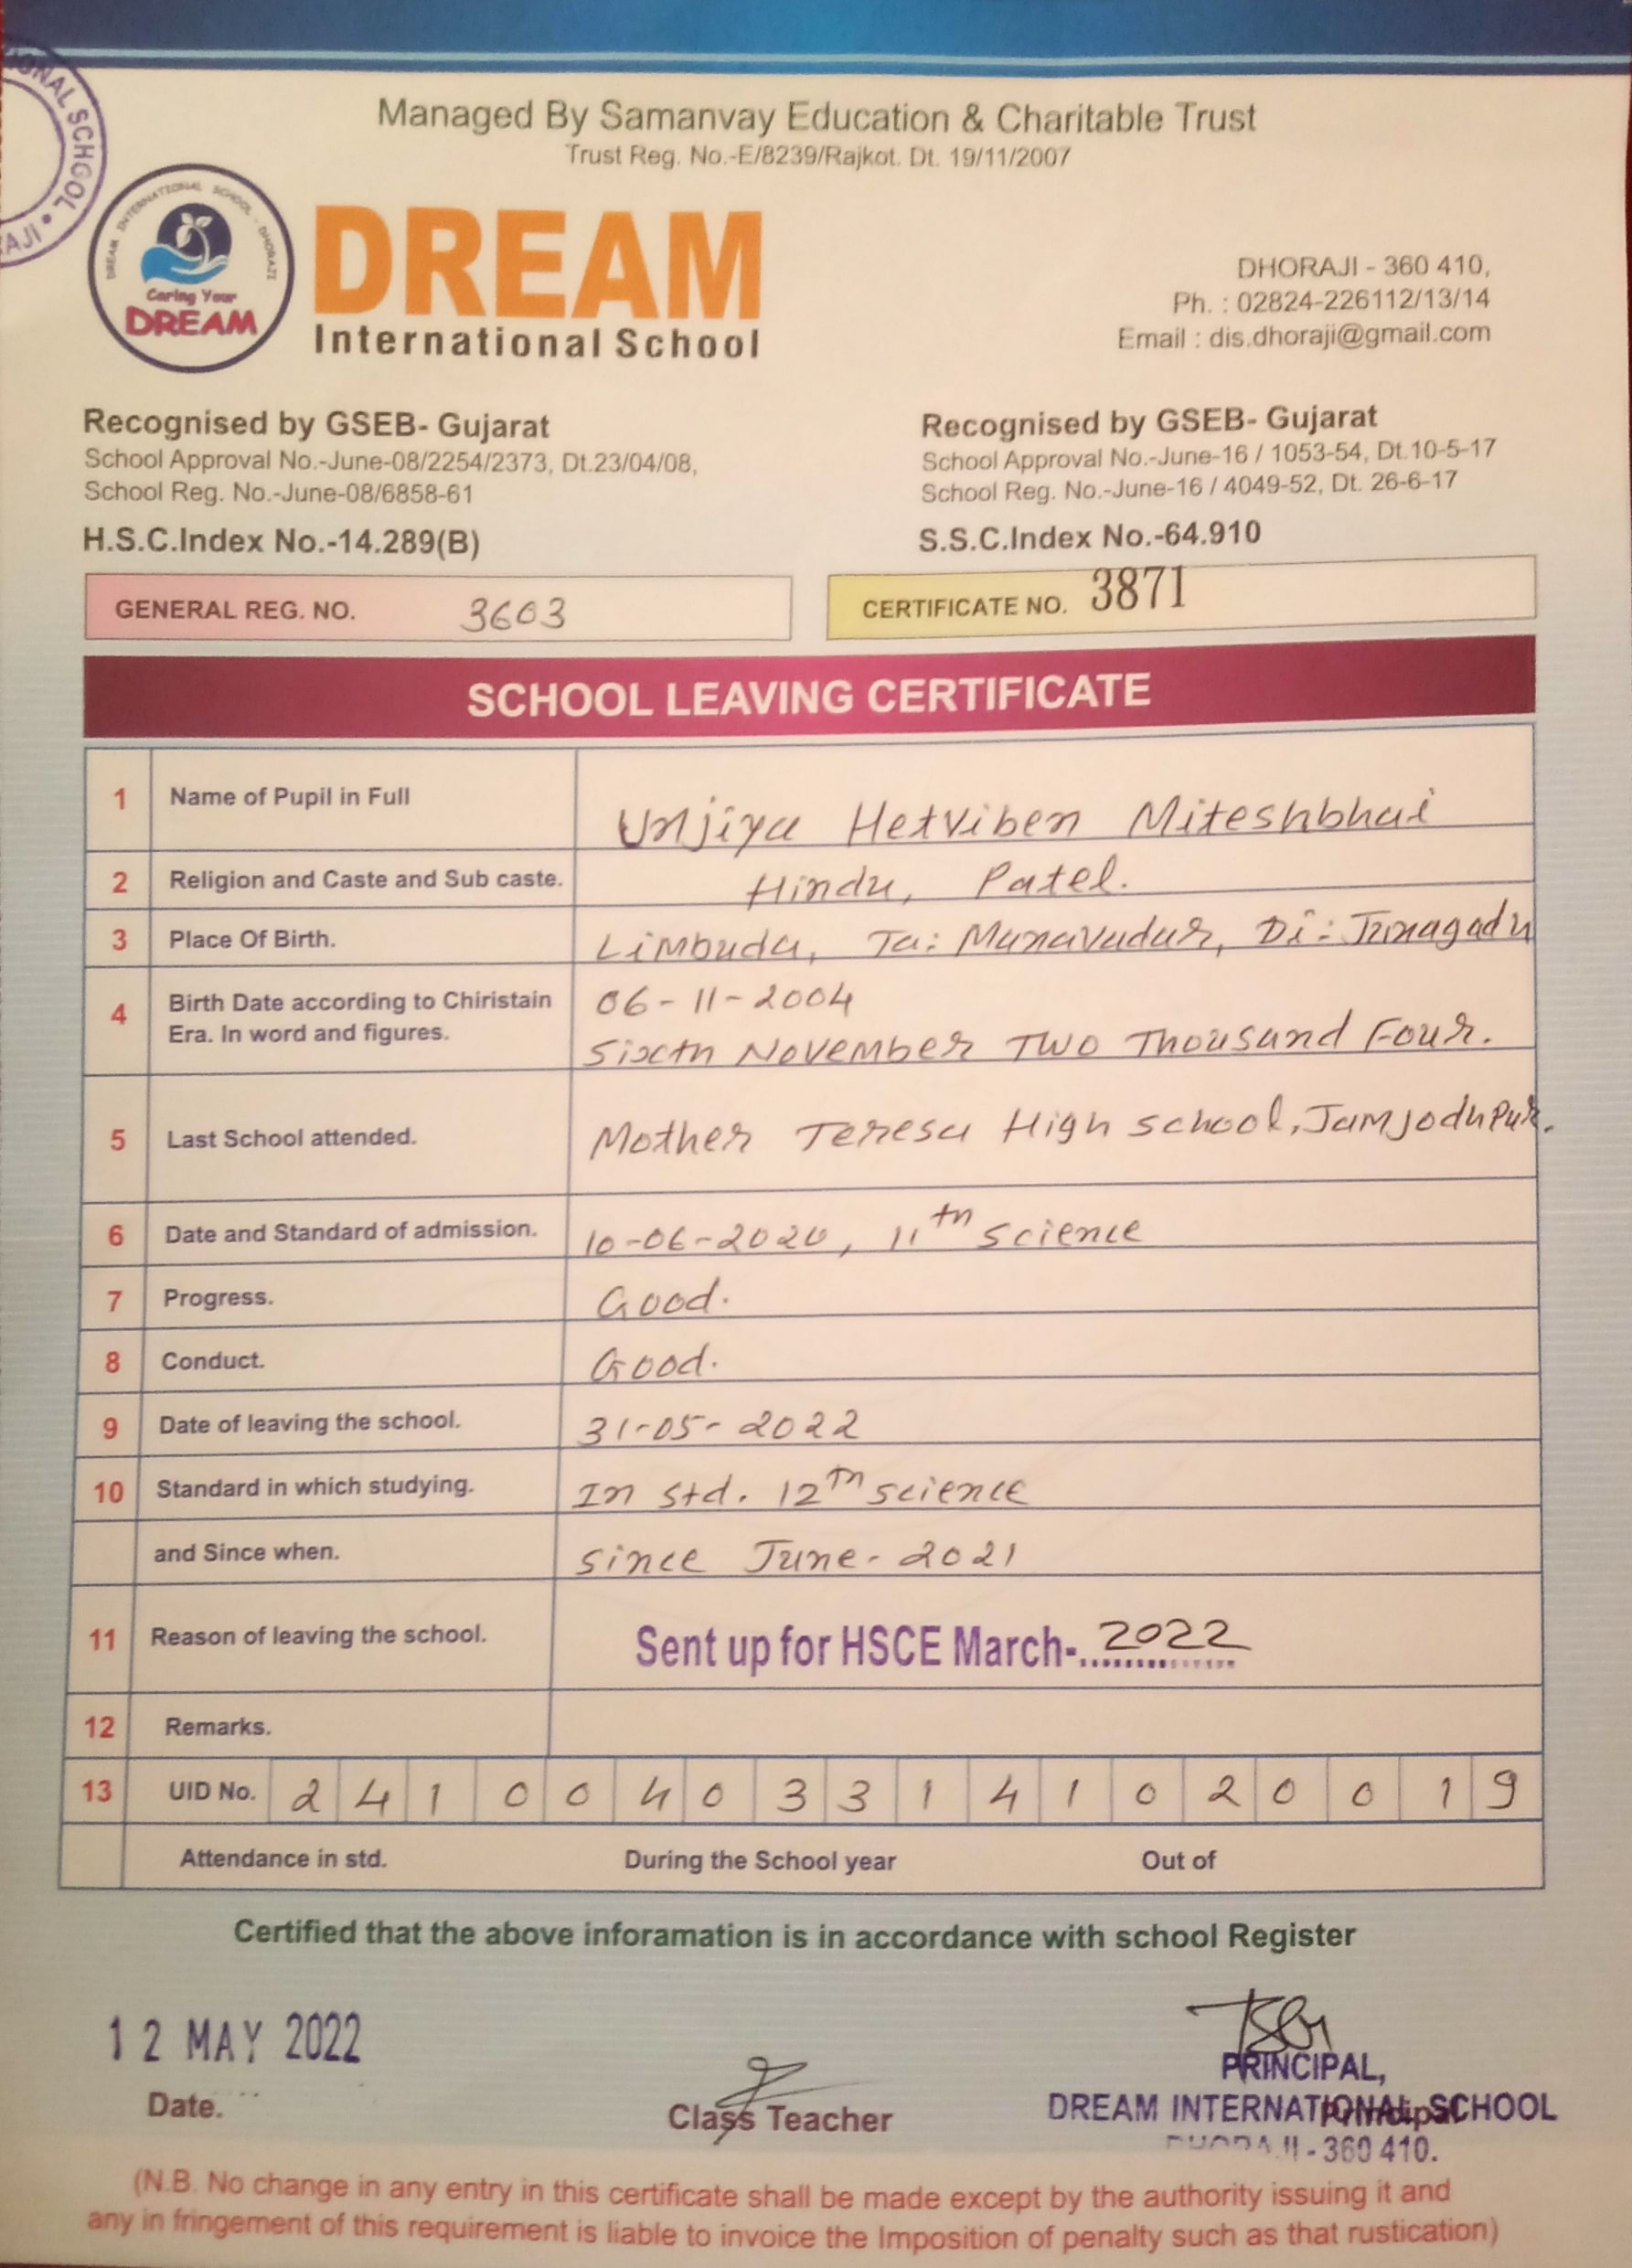 ONAL SCHOOL •
AJI •
Managed By Samanvay Education & Charitable Trust
Trust Reg. No.-E/8239/Rajkot. Dt. 19/11/2007
DREAM INTERNATIONAL SCHOOL - DHORAJI
Caring Your
DREAM
DREAM
International School
DHORAJI - 360 410,
Ph. : 02824-226112/13/14
Email : dis.dhoraji@gmail.com
Recognised by GSEB- Gujarat
School Approval No.-June-08/2254/2373, Dt.23/04/08,
School Reg. No.-June-08/6858-61
H.S.C.Index No.-14.289(B)
Recognised by GSEB- Gujarat
School Approval No.-June-16 / 1053-54, Dt.10-5-17
School Reg. No.-June-16 / 4049-52, Dt. 26-6-17
S.S.C.Index No.-64.910
GENERAL REG. NO. 3603
CERTIFICATE NO. 3871
SCHOOL LEAVING CERTIFICATE
1 Name of Pupil in Full Unjiya Hetviben Miteshbhai
2 Religion and Caste and Sub caste. Hindu, Patel.
3 Place Of Birth. Limbuda, Ta: Manavadar, Di: Junagadh
4 Birth Date according to Chiristain 06-11-2004
Era. In word and figures. Sixth November Two Thousand Four.
5 Last School attended. Mother Teresa High school, Jamjodhpur.
6 Date and Standard of admission. 10-06-2020, 11th science
7 Progress. Good.
8 Conduct. Good.
9 Date of leaving the school. 31-05-2022
10 Standard in which studying. In std. 12th science
and Since when. since June-2021
11 Reason of leaving the school. Sent up for HSCE March-2022
12 Remarks.
13 UID No. 2 4 1 0 0 4 0 3 3 1 4 1 0 2 0 0 1 9
Attendance in std. During the School year Out of
Certified that the above inforamation is in accordance with school Register
12 MAY 2022
Date.
Class Teacher
PRINCIPAL,
DREAM INTERNATIONAL SCHOOL
Principal
DHORAJI - 360 410.
(N.B. No change in any entry in this certificate shall be made except by the authority issuing it and
any in fringement of this requirement is liable to invoice the Imposition of penalty such as that rustication)